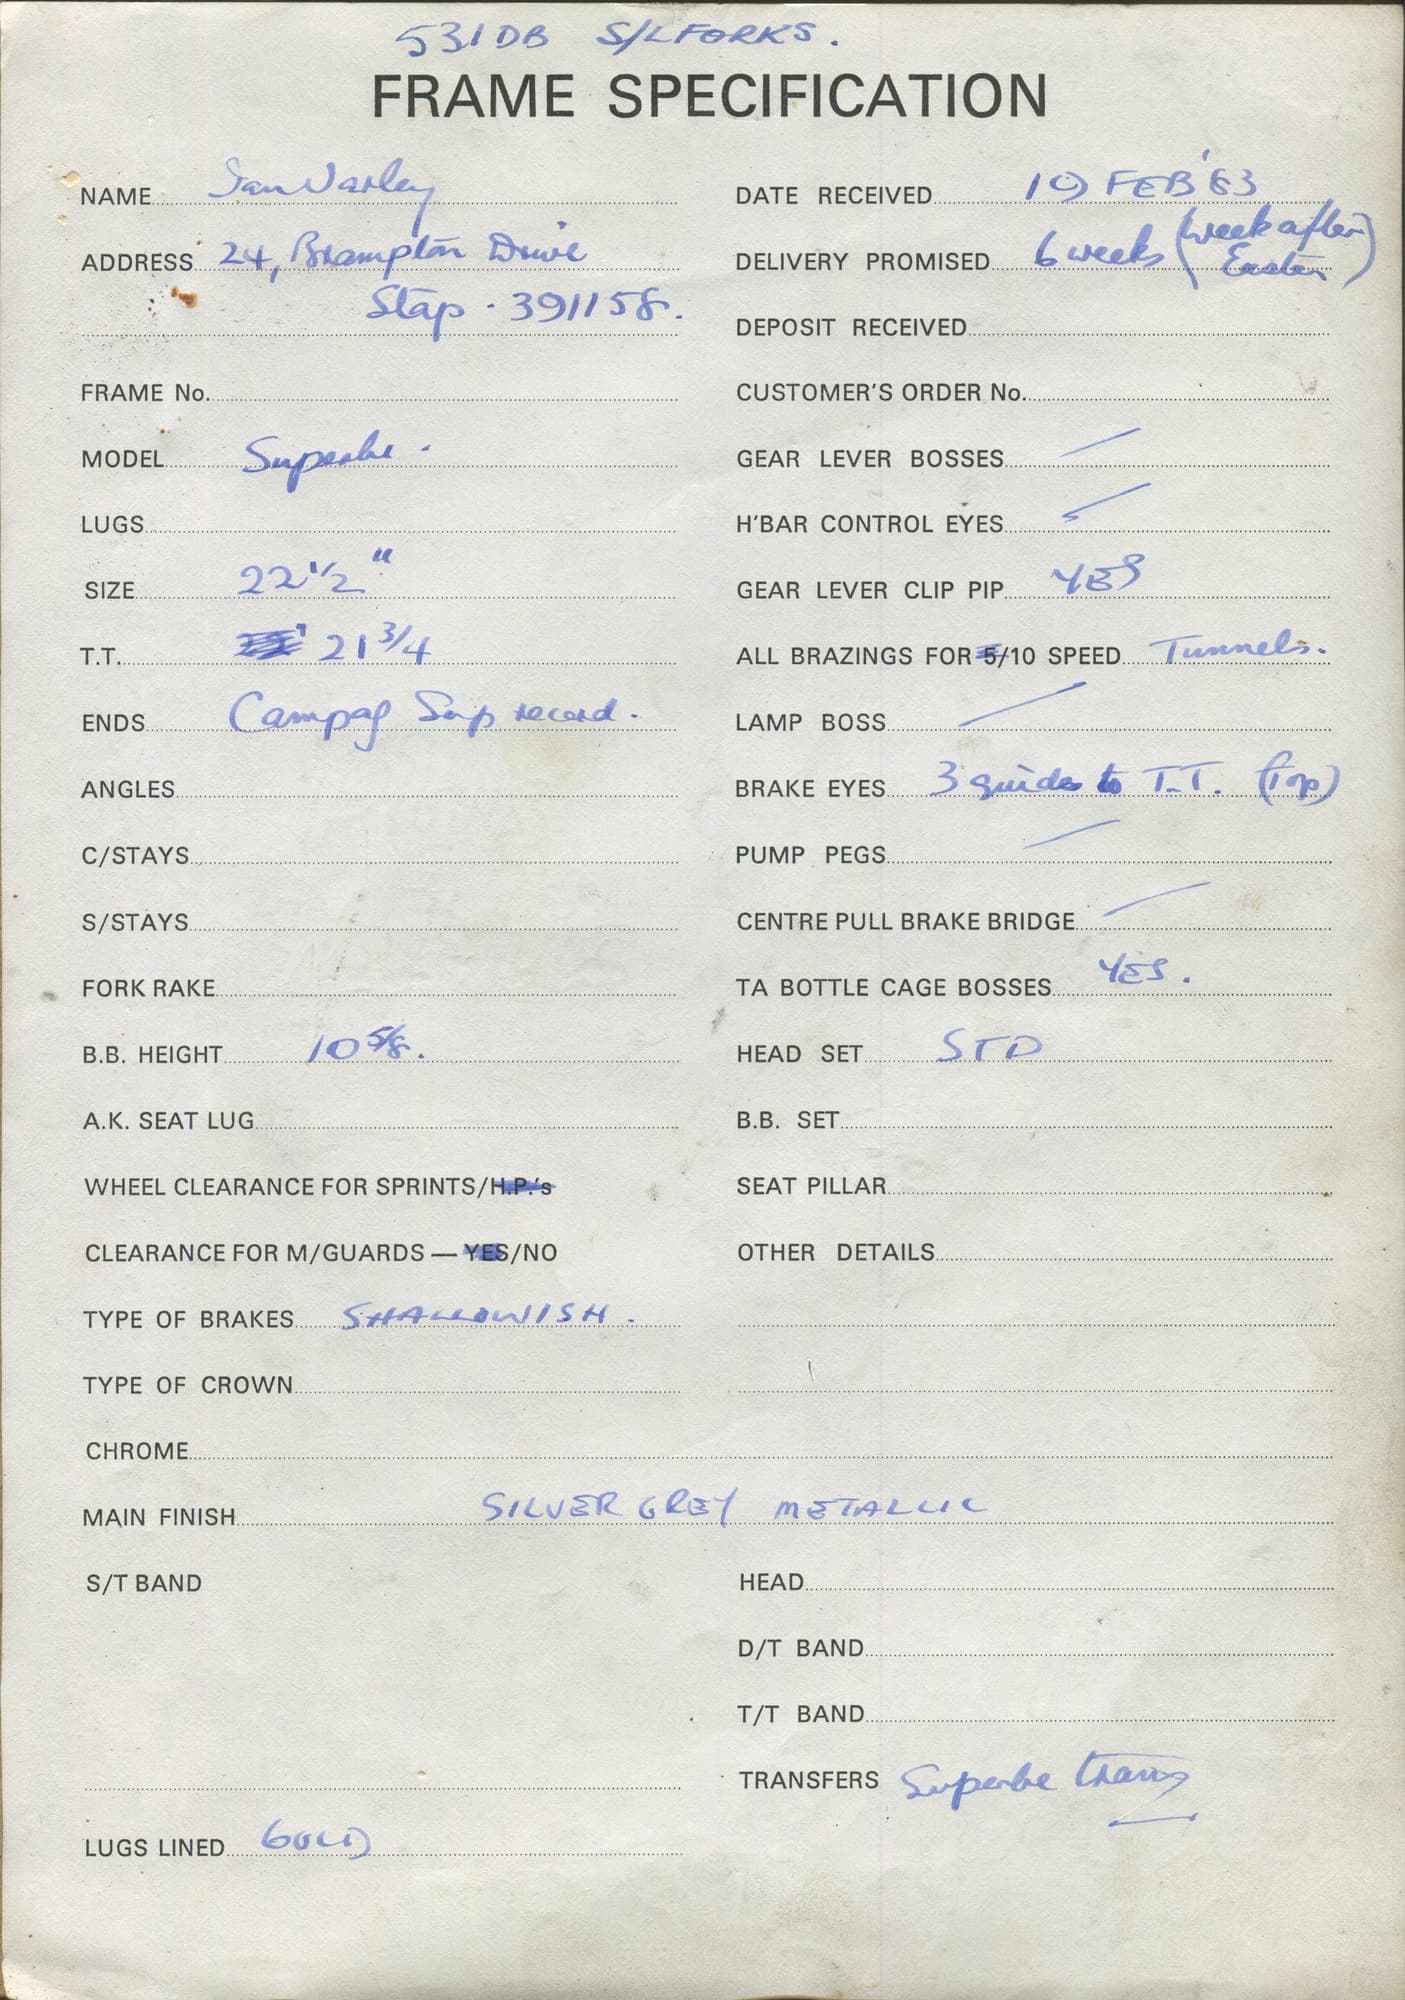 531DB S/L FORKS.
FRAME SPECIFICATION
NAME Ian Varley
ADDRESS 24, Brampton Drive
Stap. 391158.
FRAME No.
MODEL Superbe.
LUGS
SIZE 22 1/2"
T.T. 21 3/4
ENDS Campag Sup record.
ANGLES
C/STAYS
S/STAYS
FORK RAKE
B.B. HEIGHT 10 5/8.
A.K. SEAT LUG
WHEEL CLEARANCE FOR SPRINTS/H.P.'s
CLEARANCE FOR M/GUARDS — YES/NO
TYPE OF BRAKES SHALLOWISH.
TYPE OF CROWN
DATE RECEIVED 19 FEB '83
DELIVERY PROMISED 6 weeks (week after
Easter)
DEPOSIT RECEIVED
CUSTOMER'S ORDER No.
GEAR LEVER BOSSES
H'BAR CONTROL EYES
GEAR LEVER CLIP PIP YES
ALL BRAZINGS FOR 5/10 SPEED Tunnels.
LAMP BOSS
BRAKE EYES 3 guides to T.T. (Top)
PUMP PEGS
CENTRE PULL BRAKE BRIDGE
TA BOTTLE CAGE BOSSES YES.
HEAD SET STD
B.B. SET
SEAT PILLAR
OTHER DETAILS
CHROME
MAIN FINISH SILVER GREY METALLIC
S/T BAND
LUGS LINED GOLD
HEAD
D/T BAND
T/T BAND
TRANSFERS Superbe trans